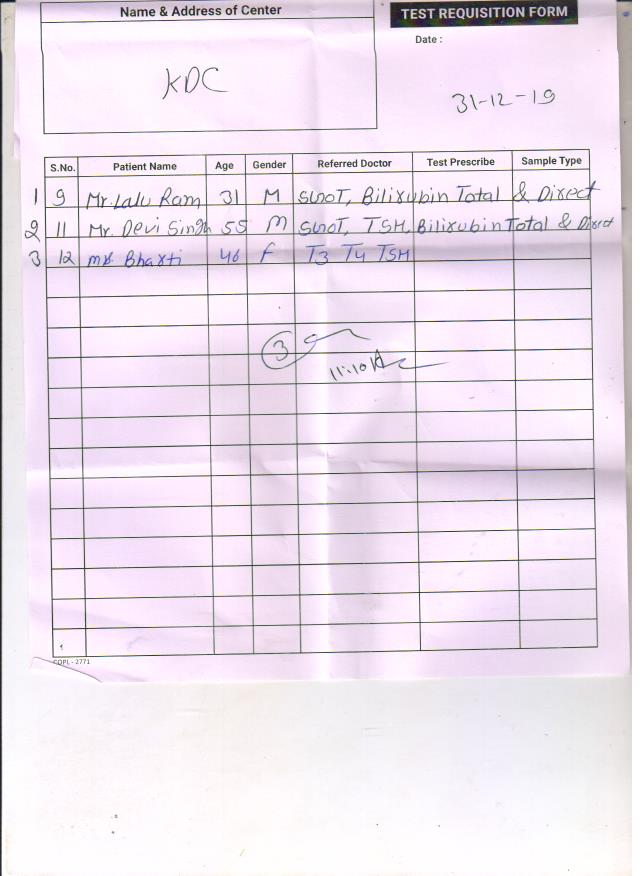 Name & Address of Center
TEST REQUISITION FORM
Date :
KDC
31-12-19
S.No. Patient Name Age Gender Referred Doctor Test Prescribe Sample Type
1 9 Mr. Lalu Ram 31 M SGOT, Bilirubin Total & Direct
2 11 Mr. Devi Singh 55 M SGOT, TSH, Bilirubin Total & Direct
3 12 Bharti 46 F T3 T4 TSH
3
11:10
CDPL - 2771